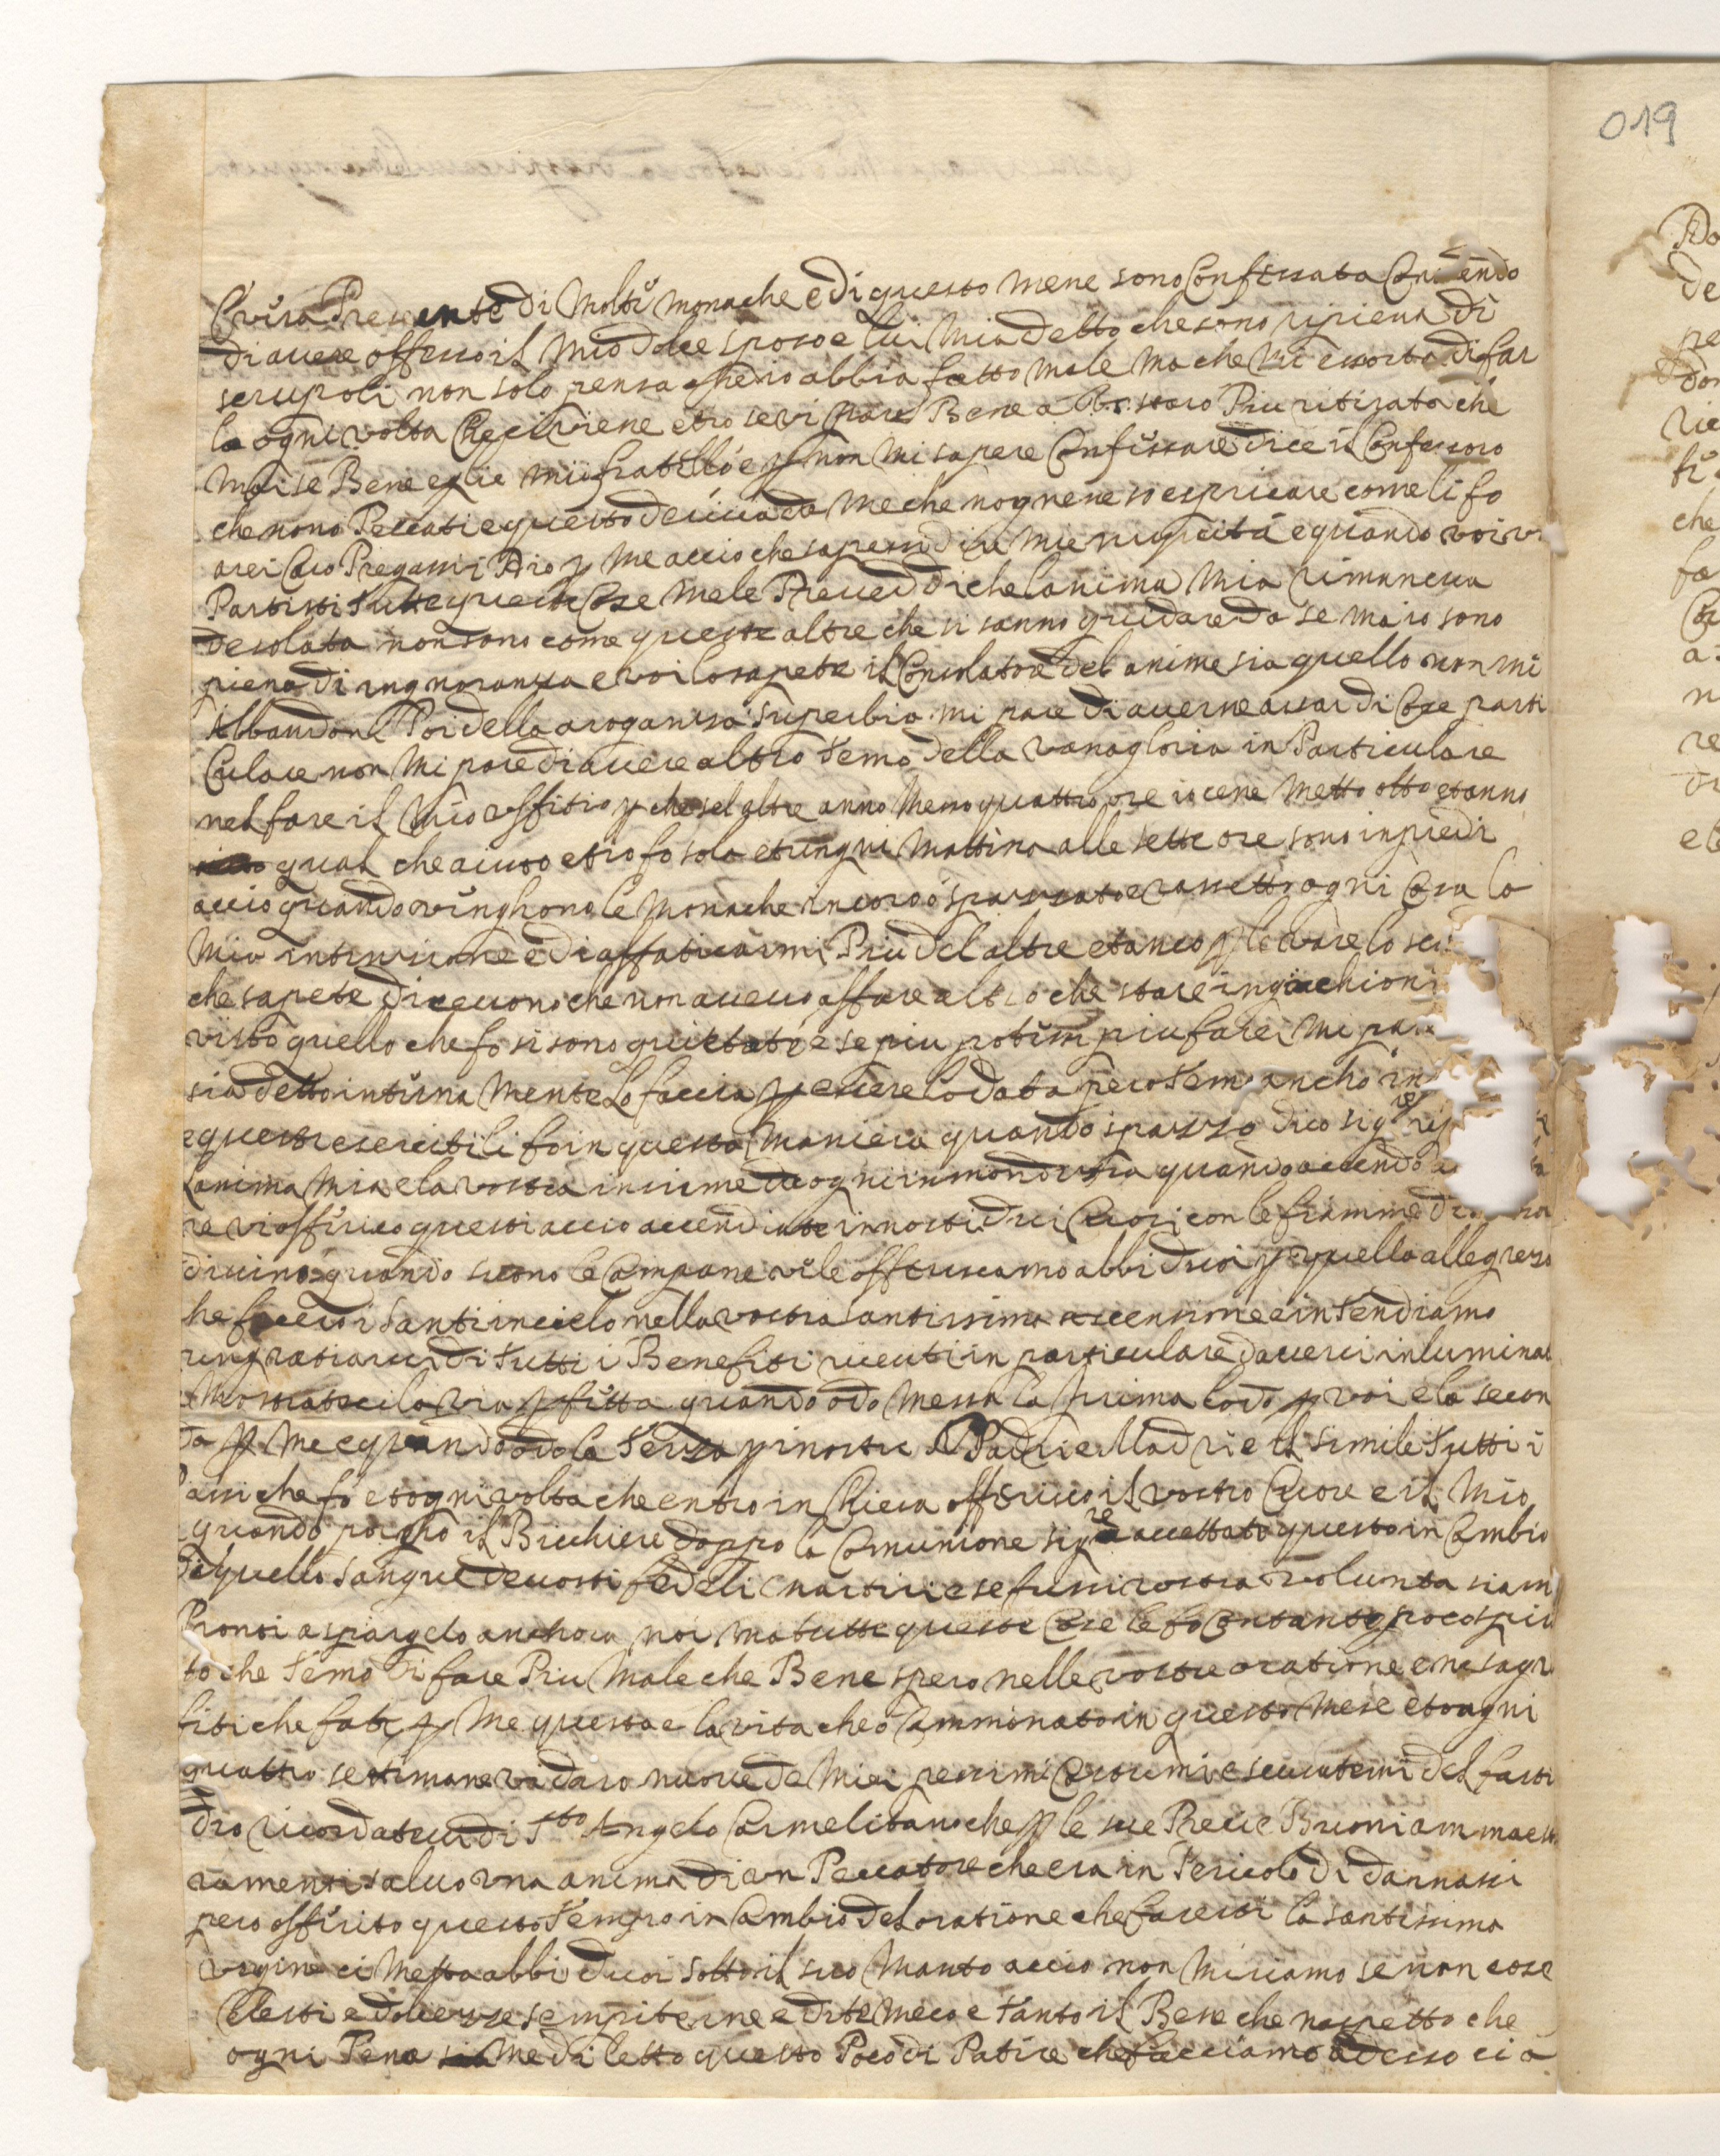 019
Cvi sa Presente di Molti monache e di questo mene sono Confessata Credendo
di avere offeso il Mio dolce sposo e lui mi a detto che sono ripiena di
scrupoli non solo pensa che io abbia fatto male ma che mi essorta di far
la ogni volta che ci viene et io se vi pare Bene a starò Piu ritirata che
Mai se Bene eglie mio fratello e p non Mi sapere Confessare dice il Confessoro
che nono Peccati e questo deriva da me che nognene so espricare come li fo
Caro Pregassi Dio p me accio che sapessi dire e quando voi
Partisti tutte queste Cose Mele Preveddi che lanima Mia rimaneva
desolata non sono come queste altre che si sanno guidare da se ma io sono
piena di ingnoranza e voi lo sapete il Consolatore del anime sia quello non mi
Abbandoni Poi della aroganza superbia mi pare di averne assai di Cose parti
Culare non Mi pare di avere altro temo della vanagloria in Particulare
nel fare il Mio offitio p che sel altre anno Meno quattro ore io cene Metto otto et anno
qual che aiuto et io fo sola et ungni Mattina alle sette ore sono in piedi
accio quando vinghono le Monache in coro ó spazzato e rassetto ogni Cosa la
Mia intenzione e di affaticarmi Piu del altre et anco p levare lo
che sapete dicevono che non avevo affare altro che stare inginochioni
visto quello che fo si sono quietate e se piu potessi piu farei Mi pare
sia detto internamente Lo faccia p essere lodata pero temo anchó in
e questi esercitii li fo in questa Maniera quando spazzo dico sigre
Lanima Mia e la vostra insieme da ogni inmonditia quando accendo
re vi offerisco questi accio accendiate in nostri dui Cuori con le fiamme
divino quando suono le Campane vi le offeriscamo abbi duoi p quella allegreza
he fecero i Santi in cielo nella vostra santissima ascensione e intendiamo
ringratiarvi di tutti i Benefiti riceuti in particulare d averci inluminat
e Mostratoci la via pfetta quando odo Messa la prima lodo p voi e la secon
da p Me e quando odo la terza p i nostri Padri e Madri e il simile tutti i
passi che fó et ogni volta che entro in Chiesa offerisco il vostro Cuore e il Mio
quando porgho il Bicchiere doppo la Comunione sigre accettate questo in Cambio
di quello sangue de vostri fedeli martiri e se fussi vostra volunta siam
Pronti a spargelo anchora noi ma tutte queste Cose le fo Con tanto poco spiri
to che temo di fare Piu Male che Bene spero nelle vostre oratione e ne sagri
fiti che fate p Me questa e la vita che ó Camminato in questo Mese et ogni
quattro settimane vi daro nuove de Miei pessimi Costumi e scusatemi del fasti
dio ricordatevi di Sto Angelo Carmelitano che p le sue Precie Buoni ammaes
ramenti salvo una anima di un Peccatore che era in Pericolo di dannassi
pero offerito questo tempo in Cambio del oratione che faressi la santissima
vergine ci Metta abbi duoi sotto il suo Manto accio non Miriamo se non cose
Celesti e dolcezze sempiterne e dite Meco e tanto il Bene che naspetto che
ogni Pena Me diletto questo Poco di Patire che facciamo adesso ci a